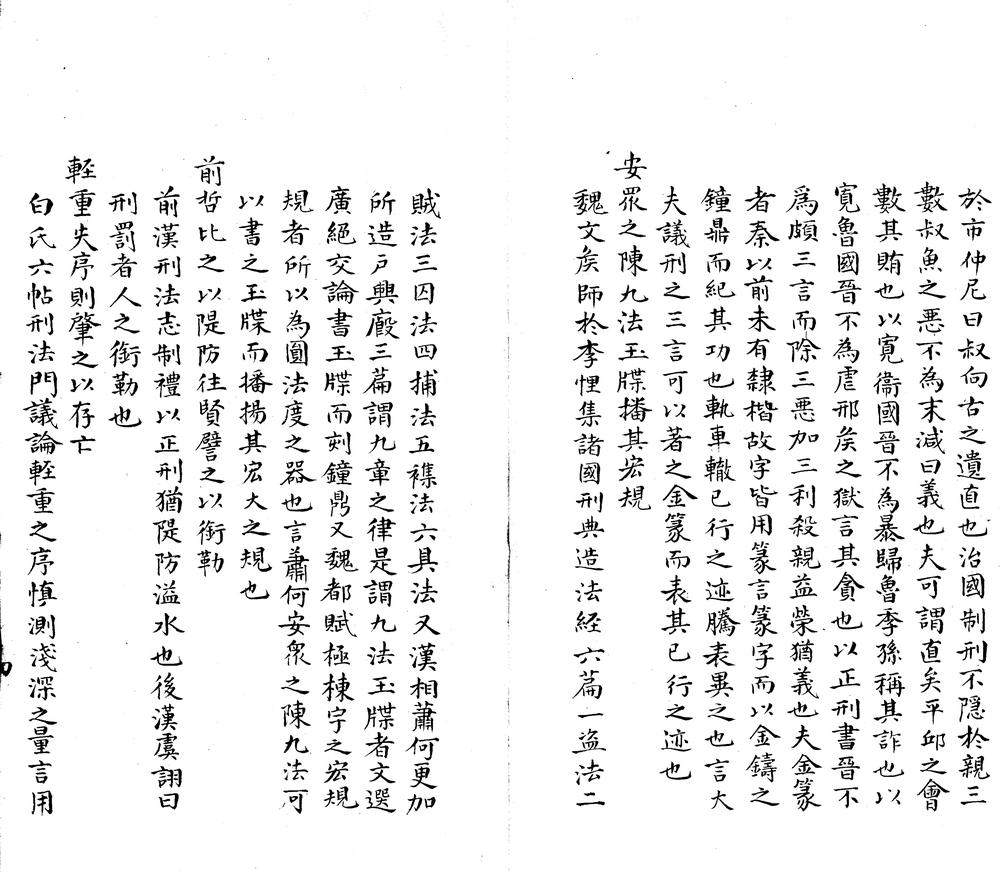 於市仲尼曰叔向古之遺直也治國制刑不隱於親三
數叔魚之惡不為末減曰義也夫可謂直矣平邱之會
數其賄也以寬衞國晉不為暴歸魯季孫稱其詐也以
寬魯國晉不為虐邢矦之獄言其貪也以正刑書晉不
為頗三言而除三惡加三利殺親益榮猶義也夫金篆
者秦以前未有隸楷故字皆用篆言篆字而以金鑄之
鐘鼎而紀其功也軌車轍已行之迹騰表異之也言大
夫議刑之三言可以著之金篆而表其已行之迹也
安眾之陳九法玉牒播其宏規
魏文矦師於李悝集諸國刑典造法経六篇一盜法二
賊法三囚法四捕法五襍法六具法又漢相蕭何更加
所造户興廄三篇謂九章之律是謂九法玉牒者文選
廣絕交論書玉牒而刻鐘鼎又魏都賦極棟宇之宏規
規者所以為圓法度之器也言蕭何安眾之陳九法可
以書之玉牒而播揚其宏大之規也
前哲比之以隄防往賢譬之以銜勒
前漢刑法志制禮以正刑猶隄防溢水也後漢虞詡曰
刑罰者人之銜勒也
輕重失序則肇之以存亡
白氏六帖刑法門議論輕重之序慎測淺深之量言用